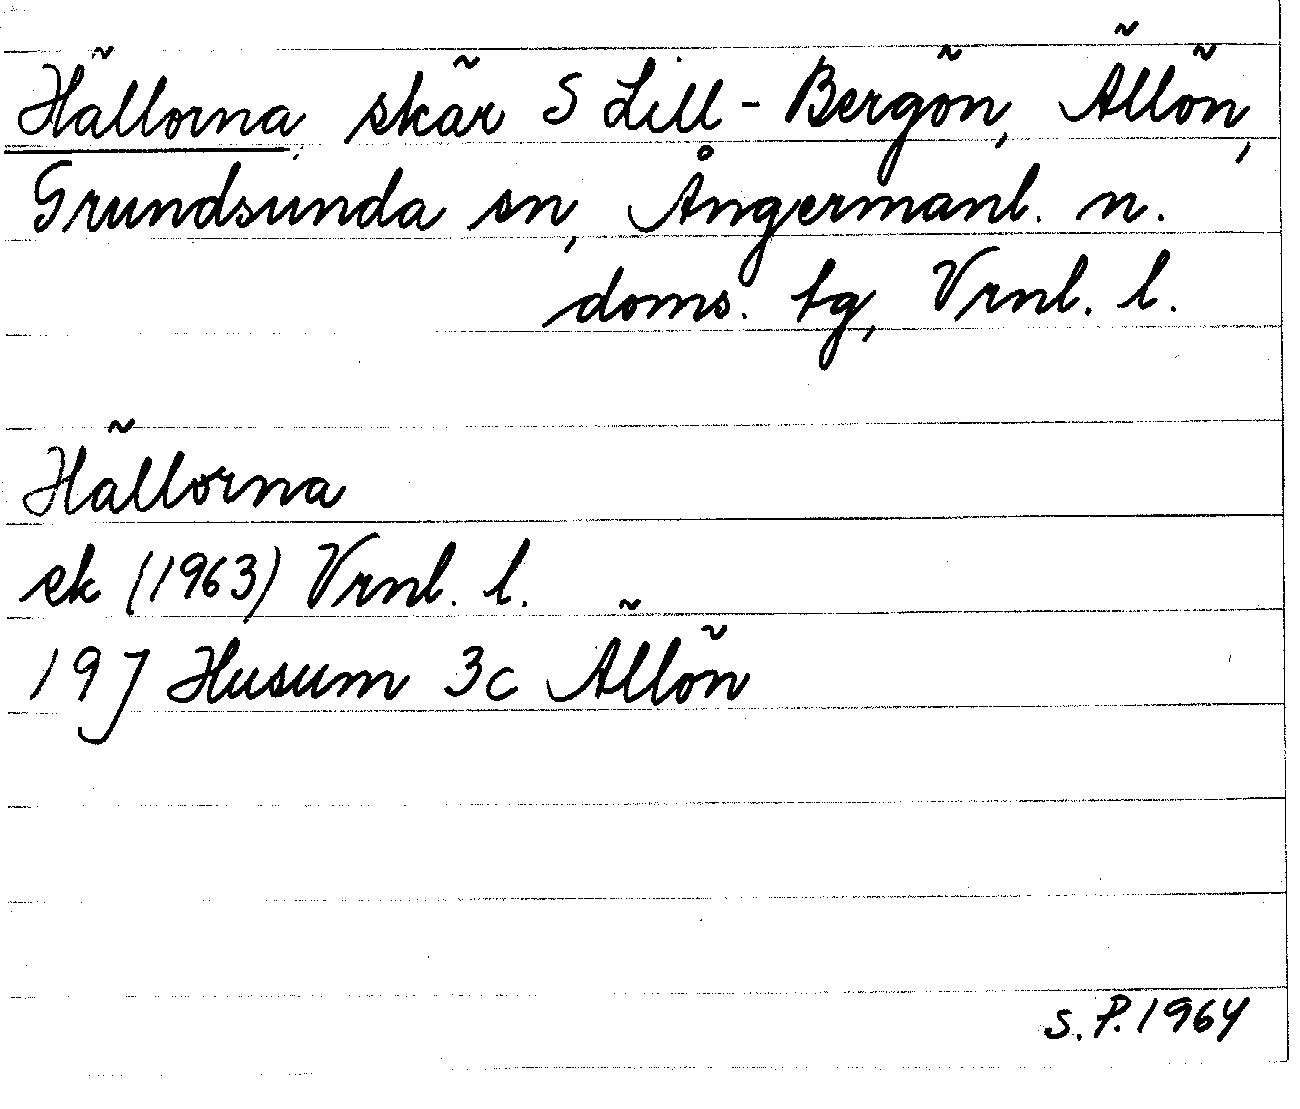 Hällorna, skär S Lill-Bergön, Ällön,
Grundsunda sn, Ångermanl. n.
doms. tg, Vrnl. l.
Hällorna
ek (1963) Vrnl. l.
19J Husum 3c Ällön
S. P. 1964